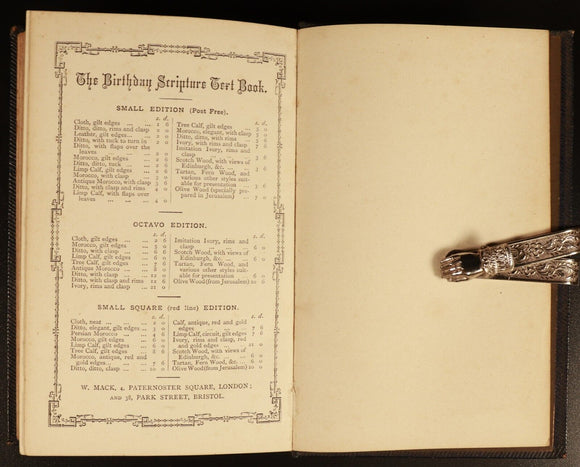 The Birthday Scripture Text Book.
SMALL EDITION (Post Free).
s. d.
Cloth, gilt edges ... ... 1 6
Ditto, ditto, rims and clasp 2 0
Leather, gilt edges... ... 2 0
Ditto, with tuck to turn in 2 0
Ditto, with flaps over the
leaves
Morocco, gilt edges ... 2 6
Ditto, ditto, tuck ... ... 2 6
Limp Calf, gilt edges ...
Morocco, with clasp ... 3 0
Antique Morocco, with clasp 3 6
Ditto, with clasp and rims 4 0
Limp Calf, with flaps over
leaves ... ... ... 4 0
s. d.
Tree Calf, gilt edges ... 5 0
Morocco, elegant, with clasp
Ditto, ditto, with rims ...
Ivory, with rims and clasp 7 6
Imitation Ivory, rims and
clasp 3 6
Scotch Wood, with views of
Edinburgh, &c. ... ... 3 6
Tartan, Fern Wood, and
various other styles suit-
able for presentation ... 3 6
Olive Wood (specially pre-
pared in Jerusalem) ... 7 0
OCTAVO EDITION.
s. d.
Cloth, gilt edges ... ... 2 6
Morocco, gilt edges ... 5 0
Ditto, with clasp ... ... 6 6
Limp Calf, gilt edges ... 6 0
Tree Calf, gilt edges ... 7 6
Antique Morocco ... ... 8 0
Ditto, with clasp ... ... 10 0
Ditto, with clasp and rims 12 6
Ivory, rims and clasp ... 21 0
s. d.
Imitation Ivory, rims and
clasp ... ... ... 6 0
Scotch Wood, with views of
Edinburgh, &c. ... ... 6 0
Tartan, Fern Wood, and
various other styles suit-
able for presentation ... 6 0
Olive Wood (from Jerusalem) 10 6
SMALL SQUARE (red line) EDITION.
s. d.
Cloth, neat ... ... ... 2 0
Ditto, elegant, gilt edges ... 2 6
Persian Morocco ... ... 4 6
Morocco, gilt edges ... 6 0
Limp Calf, gilt edges ... 6 0
Tree Calf, gilt edges ... 6
Morocco, antique, red and
gold edges... ... ... 7 6
Ditto, ditto, clasp ... ... 10 0
s. d.
Calf, antique, red and gold
edges ... ... ... 7 6
Limp Calf, circuit, gilt edges 7 6
Ivory, rims and clasp, red
and gold edges ... ... 21 0
Scotch Wood, with views of
Edinburgh, &c. ... ... 6 0
Tartan, Fern Wood, &c. ... 6 0
Olive Wood (from Jerusalem) 10 6
W. MACK, 4, PATERNOSTER SQUARE, LONDON;
AND 38, PARK STREET, BRISTOL.